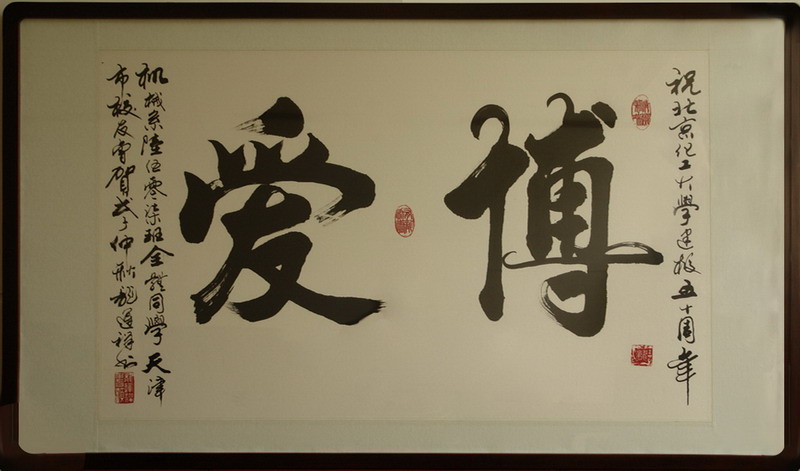 祝北京化工大學建校五十周年
博爱
机械系陸伍零柒班全體同學 天津
市校友會賀戊子仲秋